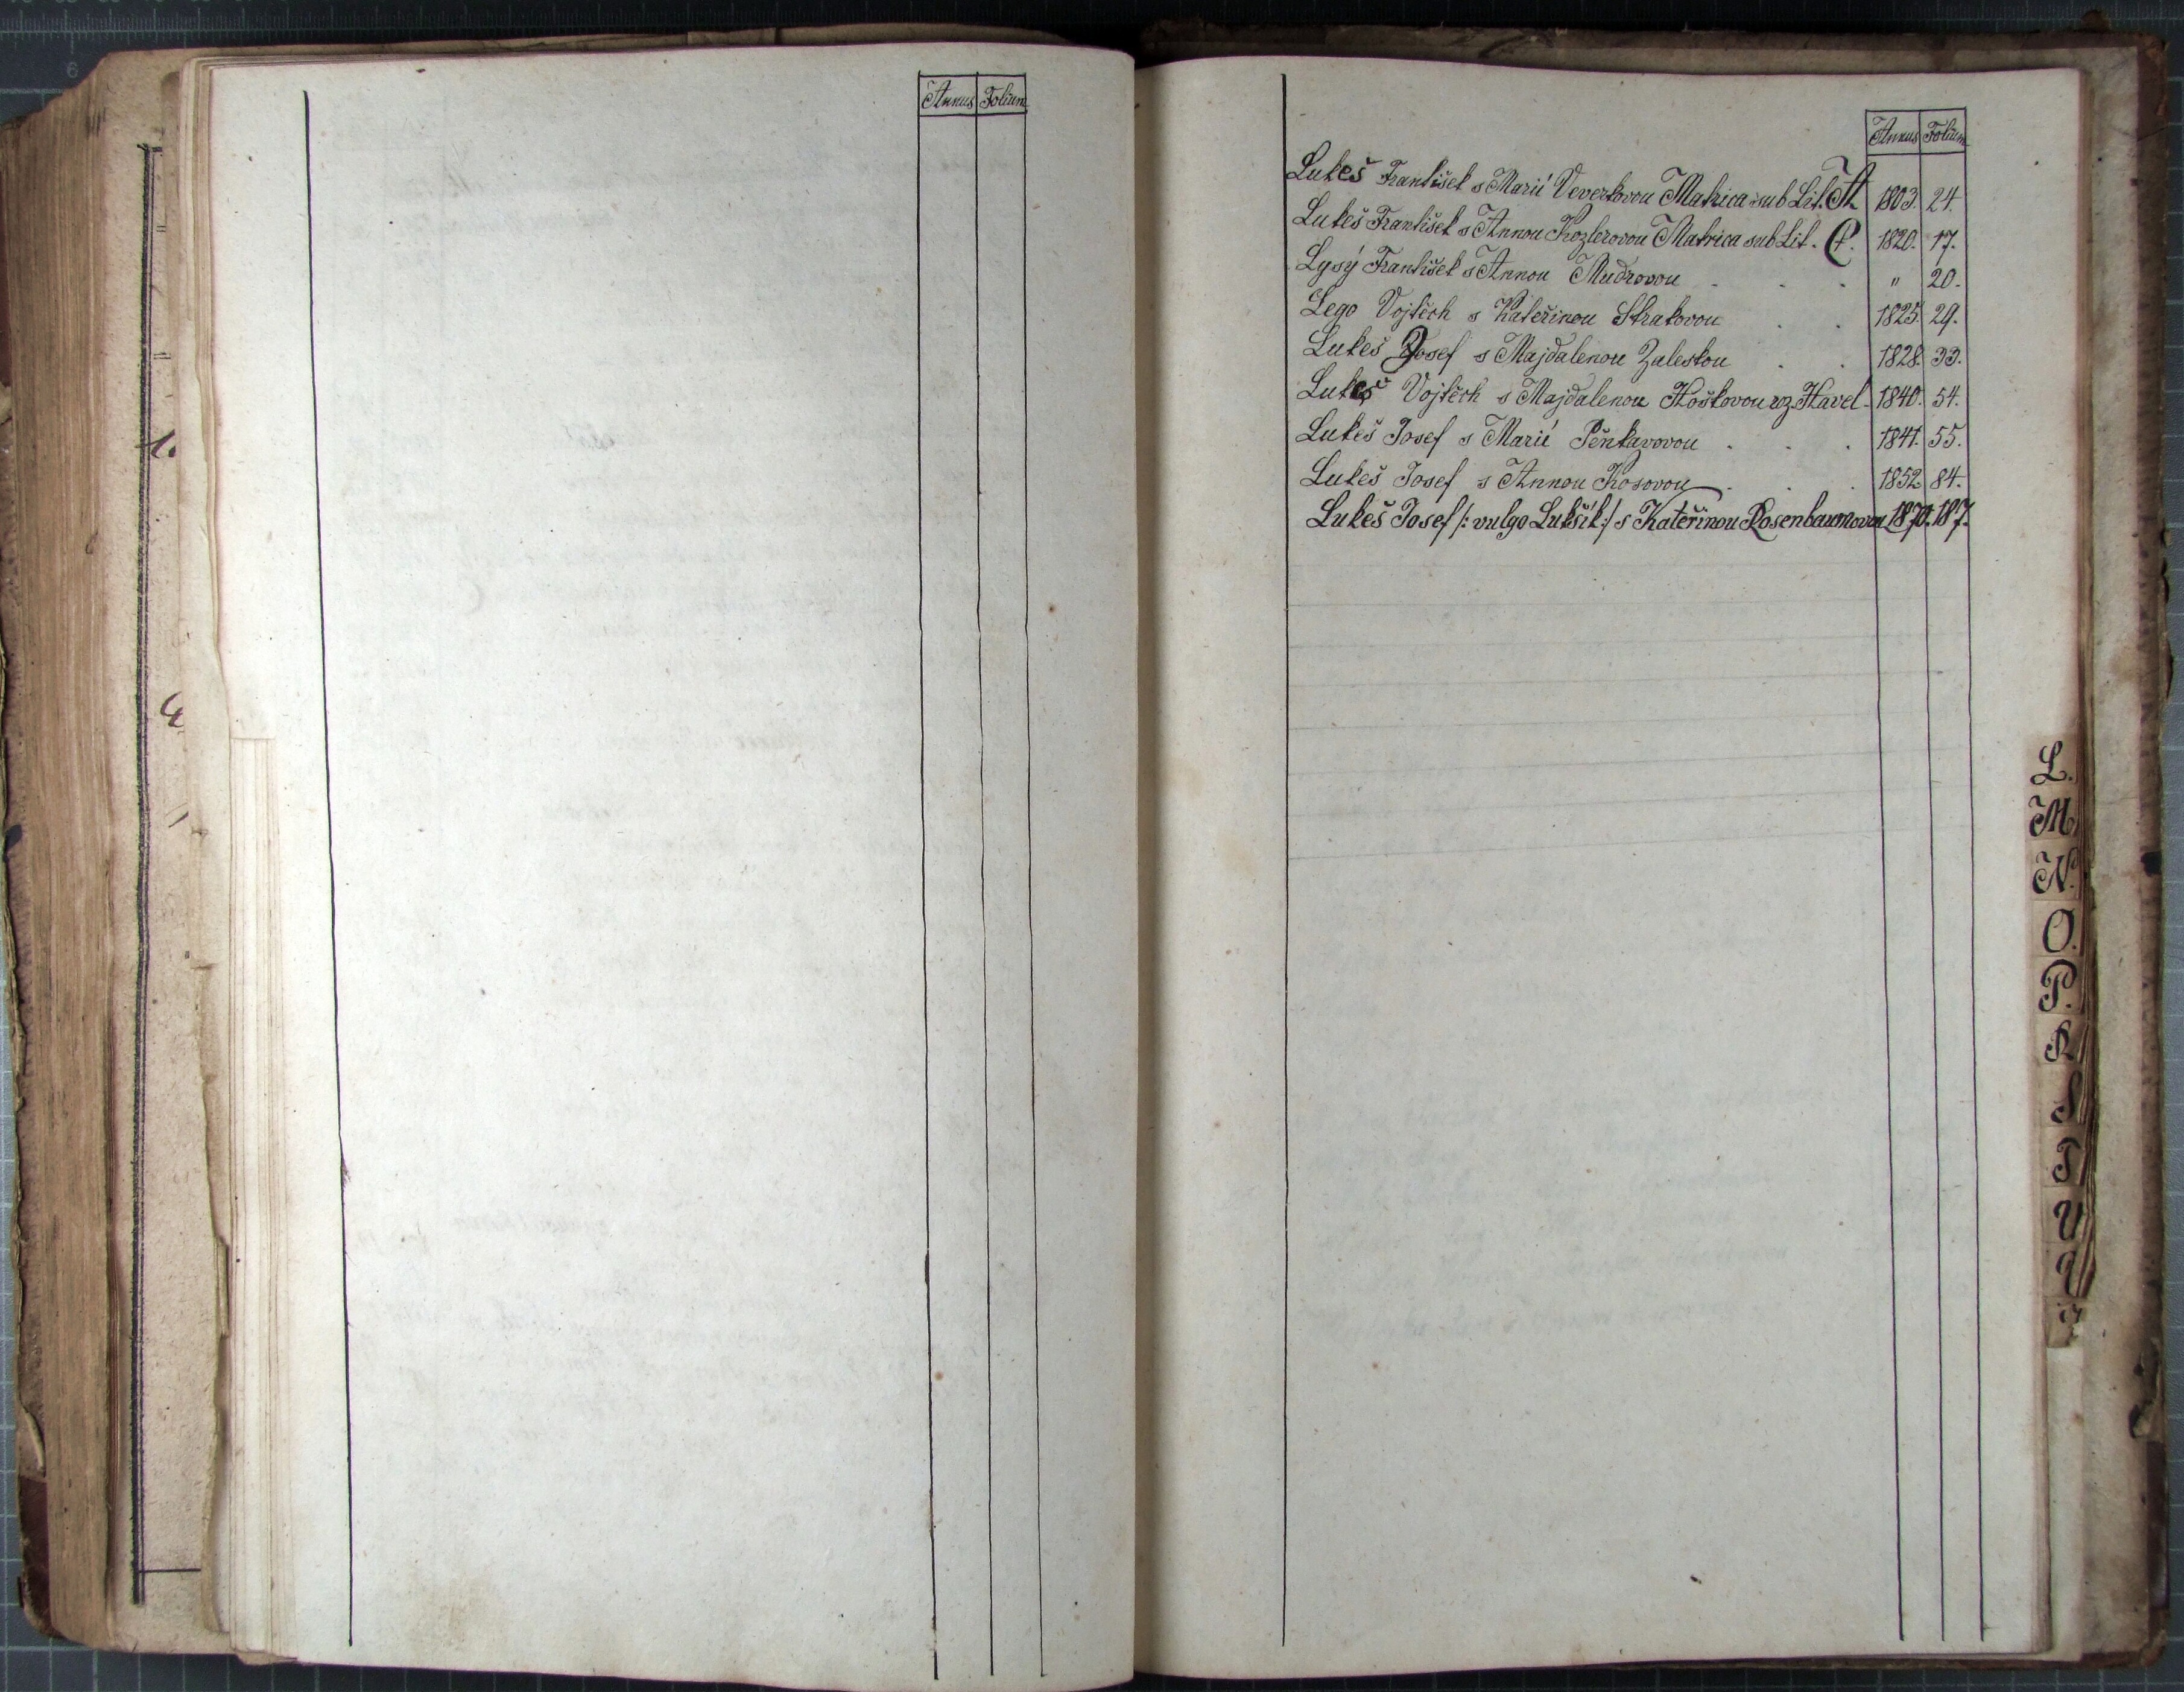 Annus Folium
Annus Folium
Lukeš František s Marií Veverkovou Matrica sub Lit. A 1803. 24.
Lukeš František s Annou Kozlerovou Matrica sub Lit. C. 1820. 17.
Lysý František s Annou Mudrovou . . . " 20.
Lego Vojtěch s Kateřinou Strakovou . . 1825. 29.
Lukeš Josef s Majdalenou Zaleskou . . 1828. 33.
Lukeš Vojtěch s Majdalenou Hoškovou rz. Havel. 1840. 54.
Lukeš Josef s Marií Pěnkavovou . . . 1841. 55.
Lukeš Josef s Annou Kosovou . . . 1852. 84.
Lukeš Josef /: vulgo Lukšík :/ s Kateřinou Rosenbaumovou 1870. 187.
L.
M.
N.
O.
P.
R
S
T
U